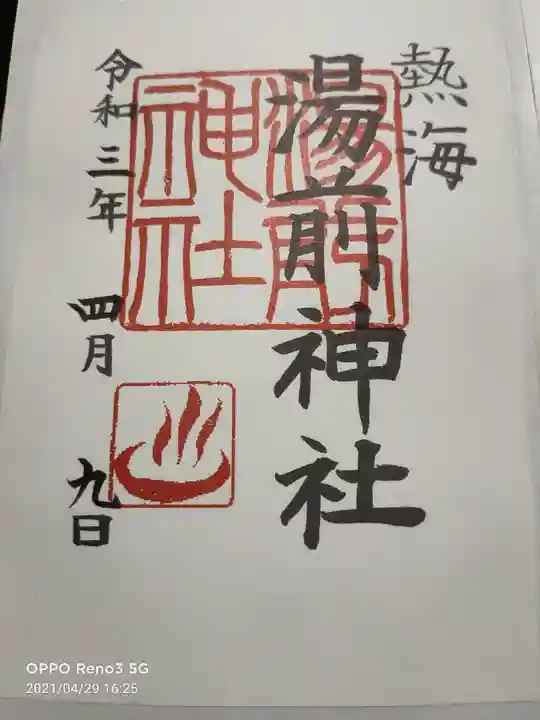 熱海
湯前神社
湯前神社
令和三年
四月
九日
OPPO Reno3 5G
2021/04/29 16:25